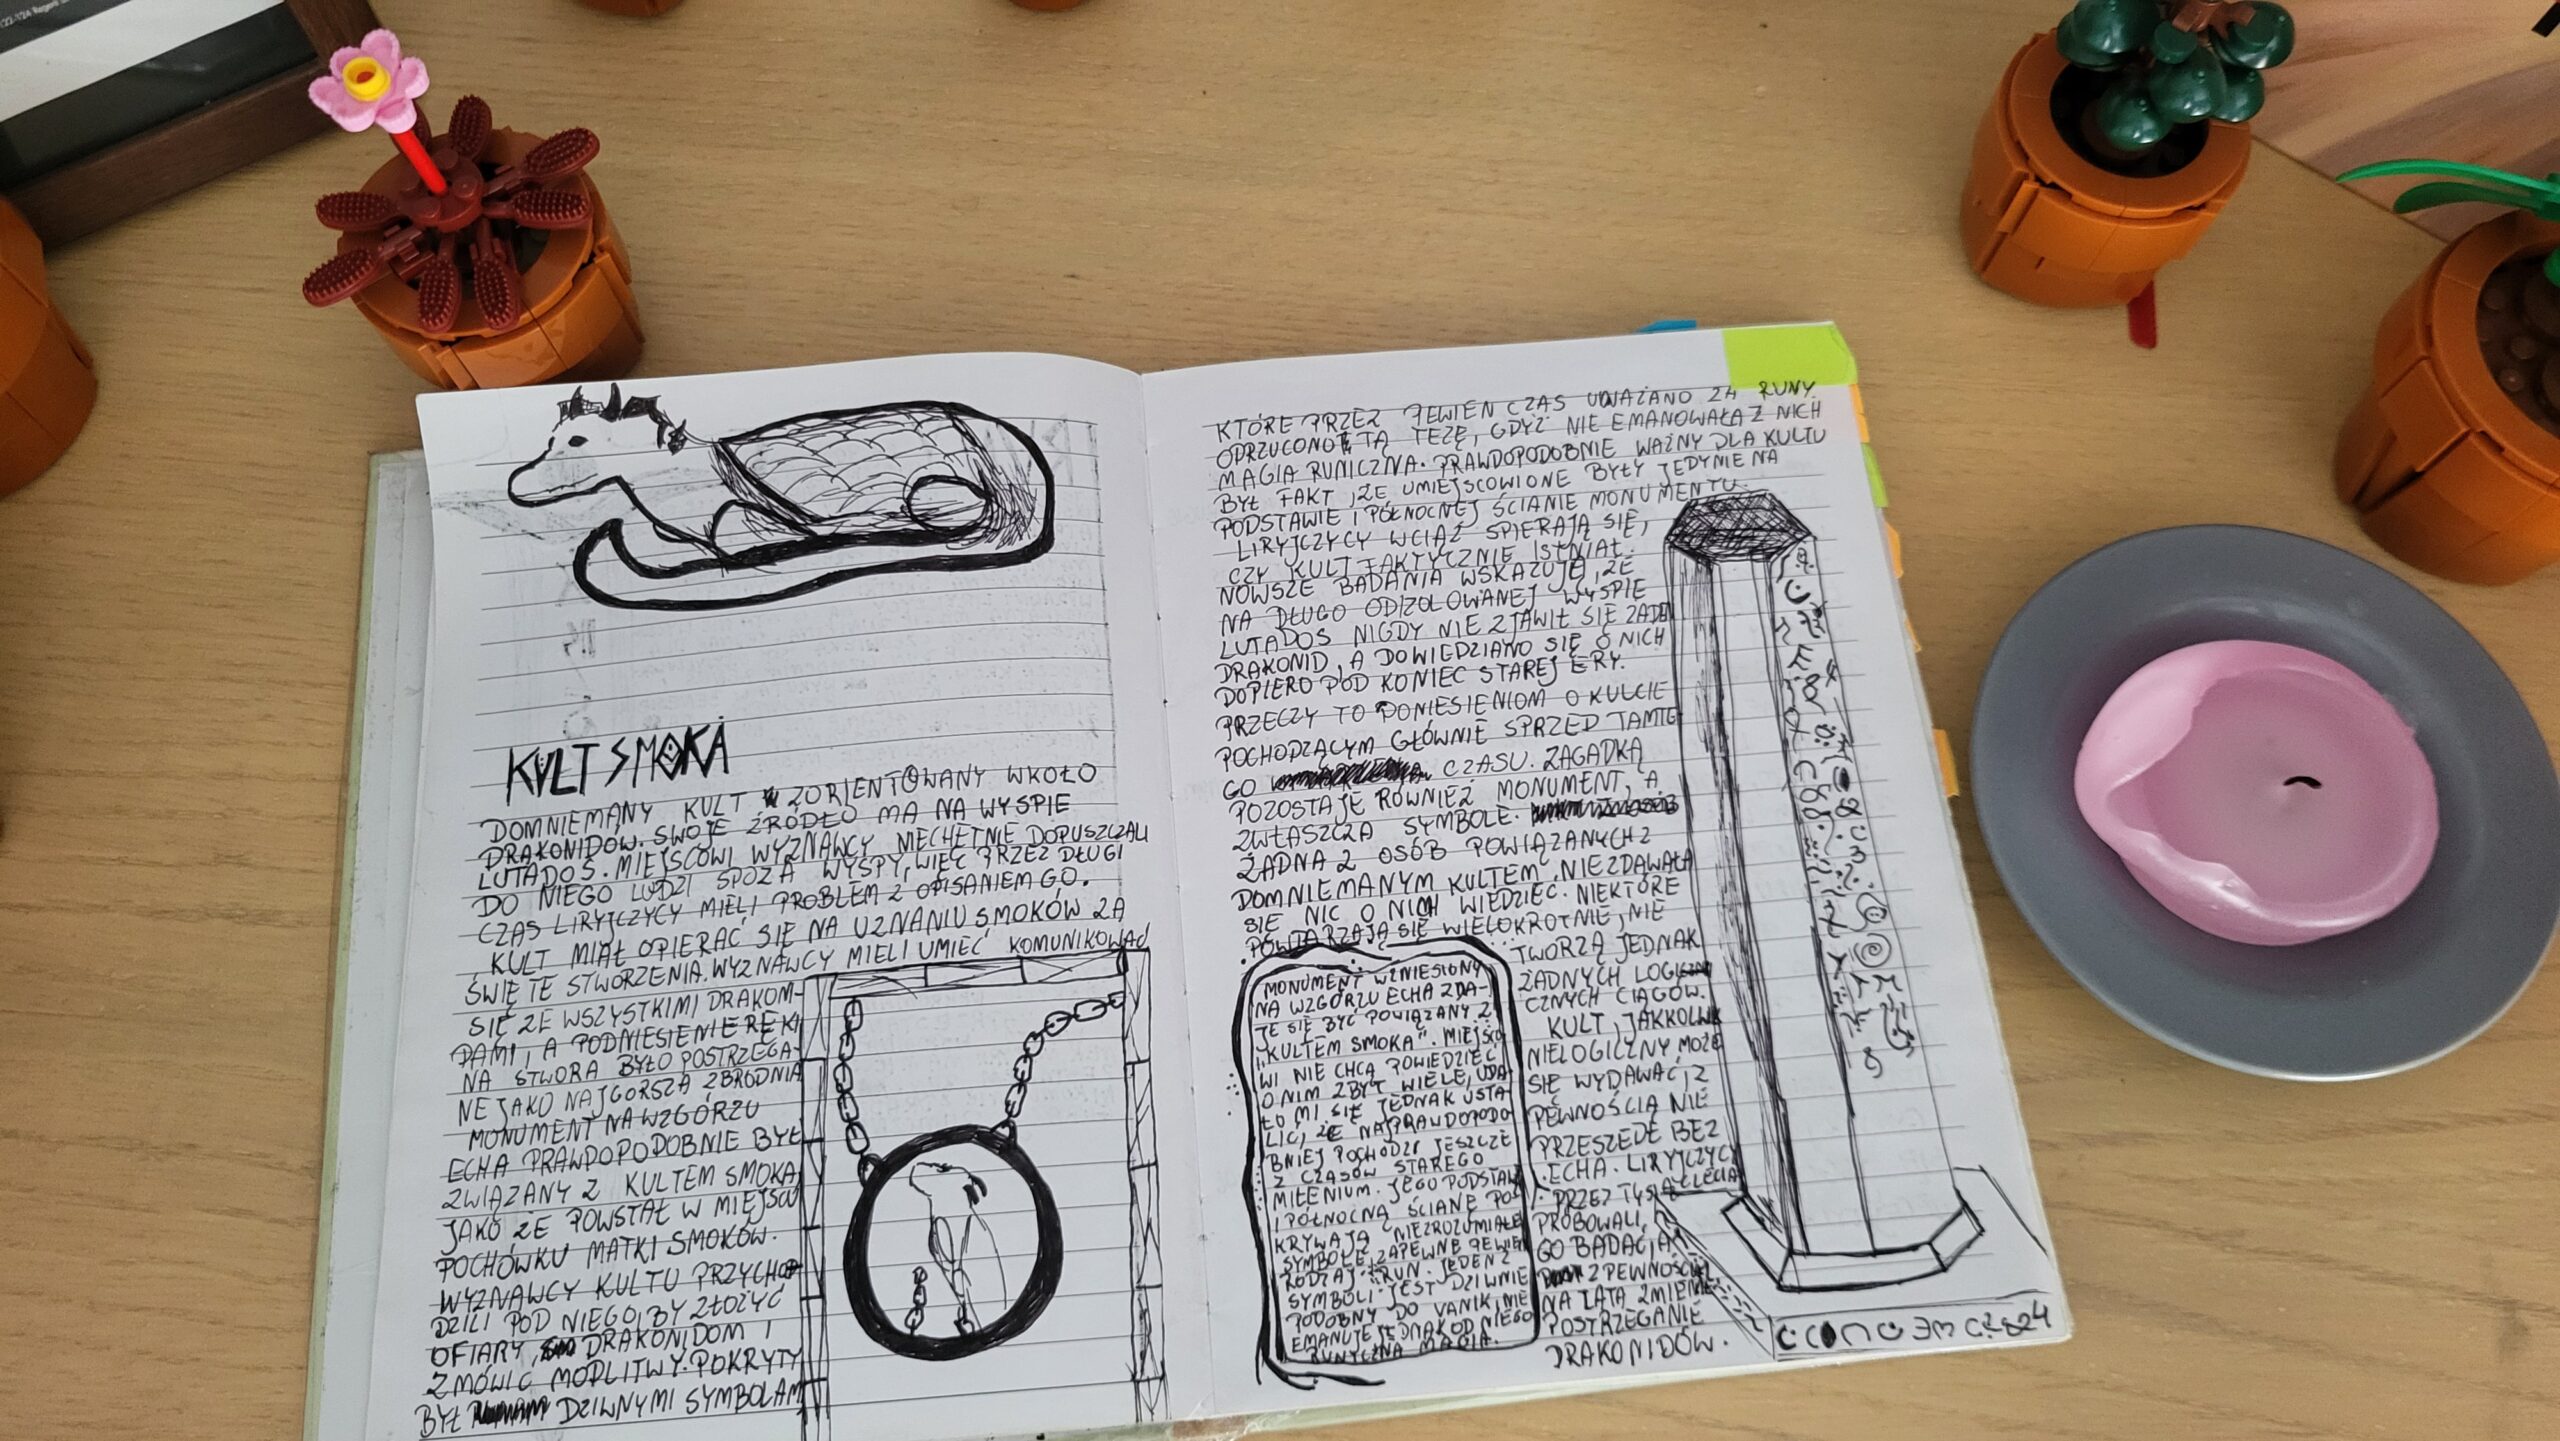 KULT SMOKA
DOMNIEMANY KULT ZORIENTOWANY WKOŁO
DRAKONIDÓW. SWOJE ŹRÓDŁO MA NA WYSPIE
LUTADOS. MIEJSCOWI WYZNAWCY NIECHĘTNIE DOPUSZCZALI
DO NIEGO LUDZI SPOZA WYSPY, WIĘC PRZEZ DŁUGI
CZAS LIRYJCZYCY MIELI PROBLEM Z OPISANIEM GO.
KULT MIAŁ OPIERAĆ SIĘ NA UZNANIU SMOKÓW ZA
ŚWIĘTE STWORZENIA. WYZNAWCY MIELI UMIEĆ KOMUNIKOWAĆ
SIĘ ZE WSZYSTKIMI DRAKOM-
PAMI, A PODNIESIENIE RĘKI
NA STWORA BYŁO POSTRZEGA-
NE JAKO NAJGORSZA ZBRODNIA
MONUMENT NA WZGÓRZU
ECHA PRAWDOPODOBNIE BYŁ
ZWIĄZANY Z KULTEM SMOKA
JAKO ŻE POWSTAŁ W MIEJSCU
POCHÓWKU MATKI SMOKÓW.
WYZNAWCY KULTU PRZYCHO
DZILI POD NIEGO, BY ZŁOŻYĆ
OFIARY, DRAKONIDOM I
ZMÓWIĆ MODLITWY. POKRYTY
BYŁ DZIWNYMI SYMBOLAM
KTÓRE PRZEZ PEWIEN CZAS UWAŻANO ZA RUNY.
ODRZUCONO TĄ TEZĘ, GDYŻ NIE EMANOWAŁA Z NICH
MAGIA RUNICZNA. PRAWDOPODOBNIE WAŻNY DLA KULTU
BYŁ FAKT, ŻE UMIEJSCOWIONE BYŁY JEDYNIE NA
PODSTAWIE I PÓŁNOCNEJ ŚCIANIE MONUMENTU.
LIRYJCZYCY WCIĄŻ SPIERAJĄ SIĘ,
CZY KULT FAKTYCZNIE ISTNIAŁ.
NOWSZE BADANIA WSKAZUJĄ, ŻE
NA DŁUGO ODIZOLOWANEJ WYSPIE
LUTADOS NIGDY NIE ZJAWIŁ SIĘ ŻADE
DRAKONID, A DOWIEDZIANO SIĘ O NICH
DOPIERO POD KONIEC STAREJ ERY.
PRZECZY TO DONIESIENIOM O KULCIE
POCHODZĄCYM GŁÓWNIE SPRZED TAMTE
GO CZASU. ZAGADKĄ
POZOSTAJE RÓWNIEŻ MONUMENT, A
ZWŁASZCZA SYMBOLE.
ŻADNA Z OSÓB POWIĄZANYCH Z
DOMNIEMANYM KULTEM, NIE ZDAWAŁA
SIĘ NIC O NICH WIEDZIEĆ. NIEKTÓRE
POWTARZAJĄ SIĘ WIELOKROTNIE, NIE
TWORZĄ JEDNAK
ŻADNYCH LOGICZN
CZNYCH CIĄGÓW.
KULT, JAKKOLWK
NIELOGICZNY MOŻE
SIĘ WYDAWAĆ, Z
PEWNOŚCIĄ NIE
PRZESZEDŁ BEZ
ECHA. LIRYJCZYCY
PRZEZ TYSIĄCLECIA
PRÓBOWALI,
GO BADAĆ, A
Z PEWNOŚCIĄ
NA LATA ZMIENIŁ
POSTRZEGANIE
DRAKONIDÓW.
MONUMENT WZNIESIONY
NA WZGÓRZU ECHA ZDA-
JE SIĘ BYĆ POWIĄZANY Z
"KULTEM SMOKA". MIEJSCO
WI NIE CHCĄ POWIEDZIEĆ
O NIM ZBYT WIELE, UDA-
ŁO MI SIĘ JEDNAK USTA-
LIĆ, ŻE NAJPRAWDOPODO-
BNIEJ POCHODZI JESZCZE
Z CZASÓW STAREGO
MILENIUM. JEGO PODSTAW
I PÓŁNOCNĄ ŚCIANĘ PO
KRYWAJĄ NIEZROZUMIAŁE
SYMBOLE, ZAPEWNE PEWIEN
RODZAJ RUN. JEDEN Z
SYMBOLI JEST DZIWNIE
PODOBNY DO VANIK, NIE
EMANUJE JEDNAK OD NIEGO
RUNYCZNA MAGIA.